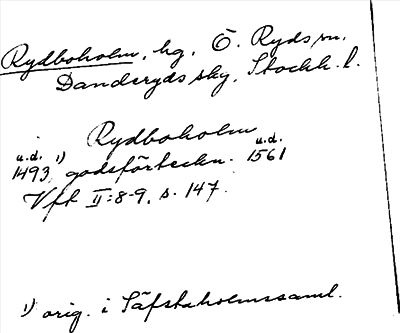 Rydboholm, hg, Ö. Ryds sn,
Danderyds sky, Stockh. l.
Rydboholm
u.d. 1) u.d.
1493, godsförteckn. 1561
Vft II:8-9, s. 147.
1) orig. i Säfstaholmssaml.